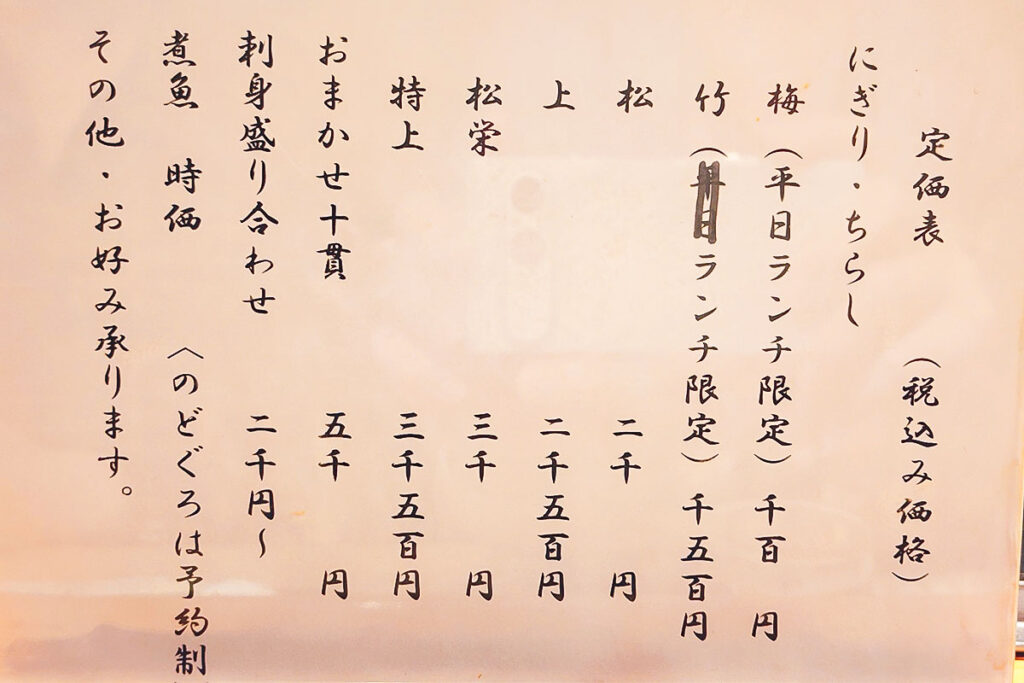 定価表 (税込み価格)
にぎり・ちらし
梅 (平日ランチ限定) 千百 円
竹 (平日ランチ限定) 千五百円
松 二千 円
上 二千五百円
松栄 三千 円
特上 三千五百円
おまかせ十貫 五千 円
刺身盛り合わせ 二千円~
煮魚 時価 〈のどぐろは予約制
その他・お好み承ります。